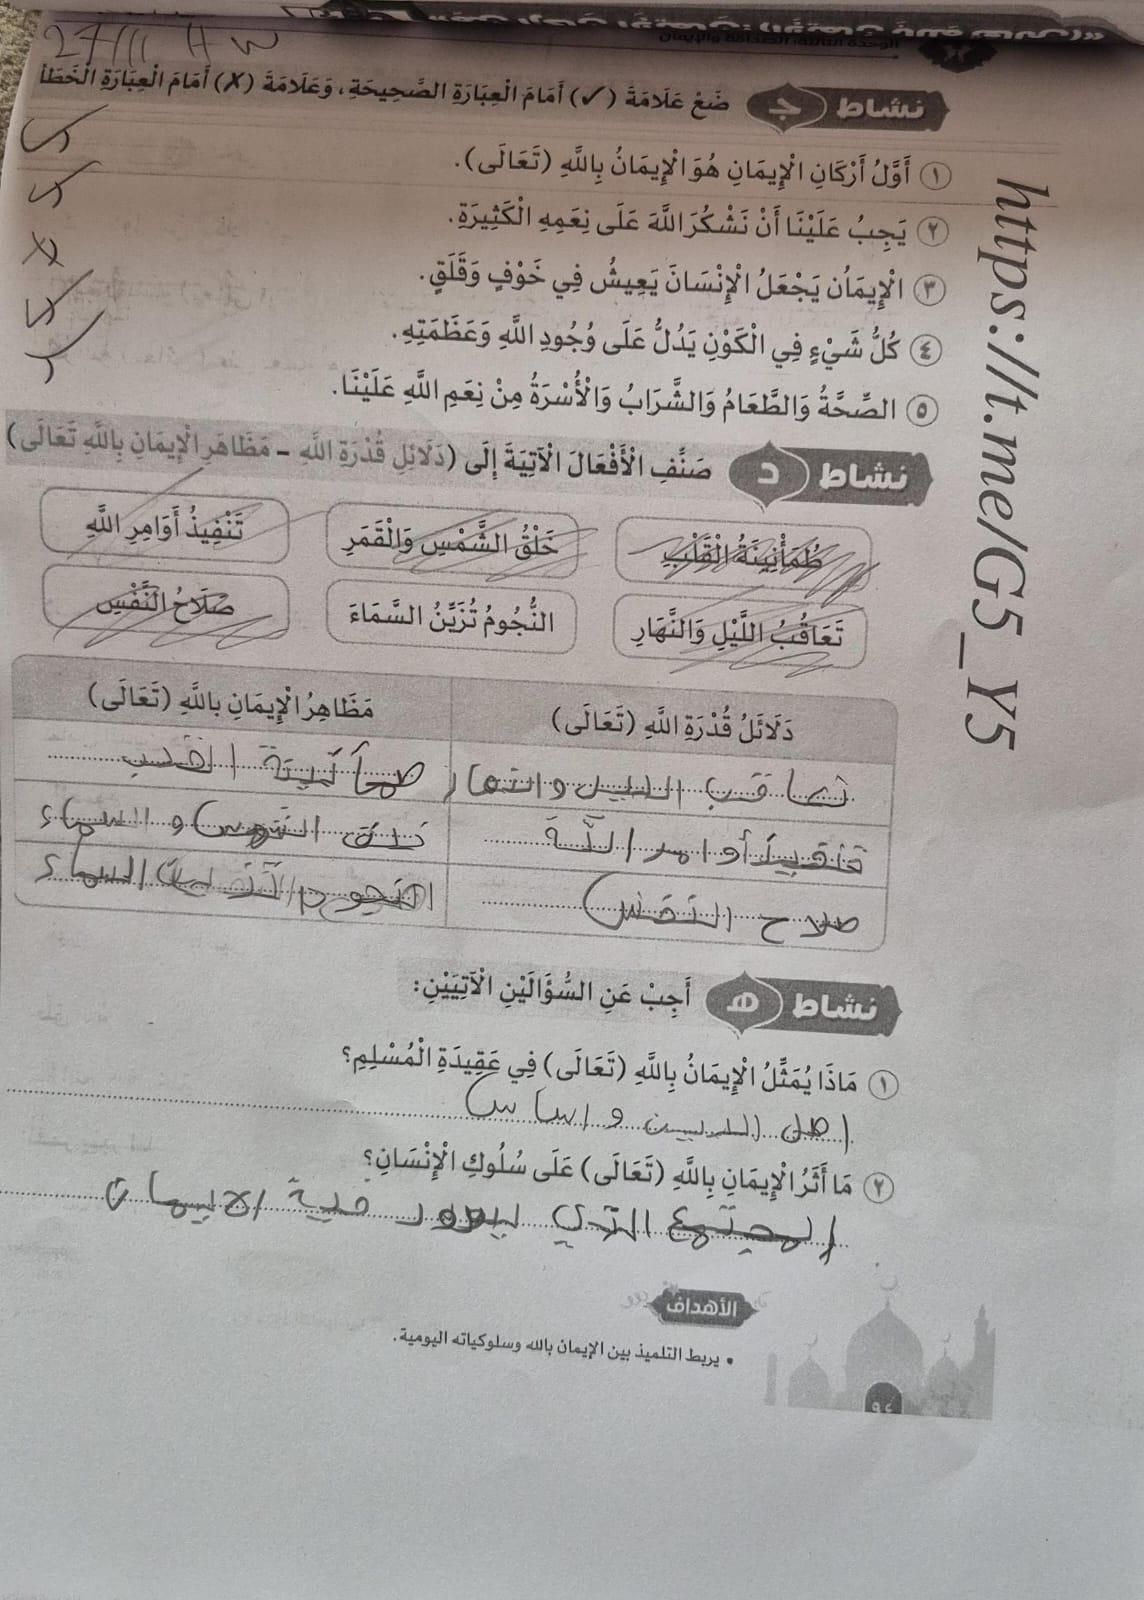 27/11 H W
الوحدة الثالثة: الصداقة والإيمان
نشاط جـ ضَعْ عَلَامَةَ (✓) أَمَامَ الْعِبَارَةِ الصَّحِيحَةِ، وَعَلَامَةَ (✗) أَمَامَ الْعِبَارَةِ الْخَطَأ
١ أَوَّلُ أَرْكَانِ الْإِيمَانِ هُوَ الْإِيمَانُ بِاللَّهِ (تَعَالَى). ✓
٢ يَجِبُ عَلَيْنَا أَنْ نَشْكُرَ اللَّهَ عَلَى نِعَمِهِ الْكَثِيرَةِ. ✓
٣ الْإِيمَاُن يَجْعَلُ الْإِنْسَانَ يَعِيشُ فِي خَوْفٍ وَقَلَقٍ. ✗
٤ كُلُّ شَيْءٍ فِي الْكَوْنِ يَدُلُّ عَلَى وُجُودِ اللَّهِ وَعَظَمَتِهِ. ✓
٥ الصِّحَّةُ وَالطَّعَامُ وَالشَّرَابُ وَالْأُسْرَةُ مِنْ نِعَمِ اللَّهِ عَلَيْنَا. ✓
https://t.me/G5_Y5
نشاط د صَنِّفِ الْأَفْعَالَ الْآتِيَةَ إِلَى (دَلَائِلِ قُدْرَةِ اللَّهِ - مَظَاهِرِ الْإِيمَانِ بِاللَّهِ تَعَالَى)
طُمَأْنِينَةُ الْقَلْبِ خَلْقُ الشَّمْسِ وَالْقَمَرِ تَنْفِيذُ أَوَامِرِ اللَّهِ
تَعَاقُبُ اللَّيْلِ وَالنَّهَارِ النُّجُومُ تُزَيِّنُ السَّمَاءَ صَلَاحُ النَّفْسِ
دَلَائَلُ قُدْرَةِ اللَّهِ (تَعَالَى) مَظَاهِرُ الْإِيمَانِ بِاللَّهِ (تَعَالَى)
تعاقب الليل والنهار القلب
أوامر اللة الشمس و السماء
صلاح النفس السماء
نشاط هـ أَجِبْ عَنِ السُّؤَالَيْنِ الْآتِيَيْنِ:
١ مَاذَا يُمَثِّلُ الْإِيمَانُ بِاللَّهِ (تَعَالَى) فِي عَقِيدَةِ الْمُسْلِمِ؟
اصل الدين و اساس
٢ مَا أَثَرُ الْإِيمَانِ بِاللَّهِ (تَعَالَى) عَلَى سُلُوكِ الْإِنْسَانِ؟
المجتمع الذي فية الايمان
الأهداف
• يربط التلميذ بين الإيمان بالله وسلوكياته اليومية.